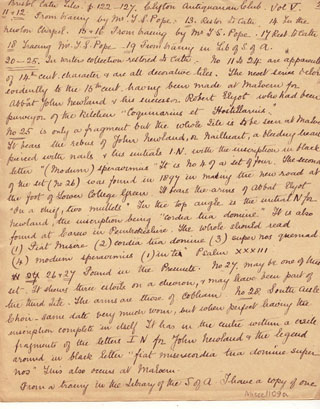 Bristol Cate Tiles p 122-127. Clifton Antiquarian Club. Vol V.
11+12 From tracing by Mr T.S. Pope. 13. Restd to Cate 14 In the
Newton Chapel. 15+16 From tracing by Mr T.S. Pope. 17 Restd to Cate
18 Tracing Mr T.S. Pope 19 From tracing in Lib of S of A.
20-25. In writers collection restored to Cate. No 11 to 24 are apparently
of 14th cent. character & are all decorative tiles. The next series belong
to the 16th cent. having been made at Malvern for
Abbot John Newland & his successor Robert Elyot who had been
purveyor of the Kitchen
No 25 is only a fragment but the whole tile is to be seen at Malvern
It bears the rebus of John Newland, a bleeding heart
pierced with nails & his initials I.N. with the inscription in black
letter "(Modum) speravimus" It is no 4 of a set of four. The second
of the set (No 26) was found in 1897 in making the new road at
the foot of Lower College Green It bears the arms of Abbot Elyot
"On a chief, two mullets" In the top angle is the initial N for
Newland, the inscription being "cordia tua domine" It is also
found at Carew in Pembrokeshire. The whole should read
(1) Fiat Misere (2) cordia tua domine (3) super nos quemad
(4) modum speravimus (1) in te" Psalm xxxiii
27 26+27 Found in the No. 27 may be one of this
set. It shows three on a chevron, & may have been part of
the third tile. The arms are those of Cobham No 28 South Aisle
Choir same date very much worn, but when perfect having the
inscription complete in itself It has in the centre within a circle
fragments of the letters I N for John Newland & the legend
around in black letter "fiat misericordia tua domine super
nos" This also occurs at Malvern
From a tracing in the Library of the S of A I have a copy of one